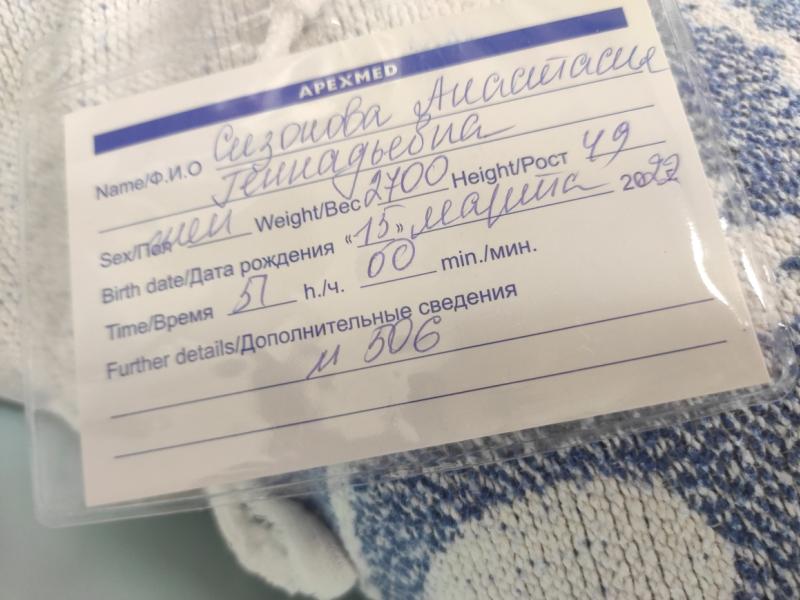 APEXMED
Name/Ф.И.О Сизонова Анастасия
Геннадьевна
Sex/Пол жен Weight/Вес 2700 Height/Рост 49
Birth date/Дата рождения «15» марта 2022
Time/Время 51 h./ч. 00 min./мин.
Further details/Дополнительные сведения
и 506